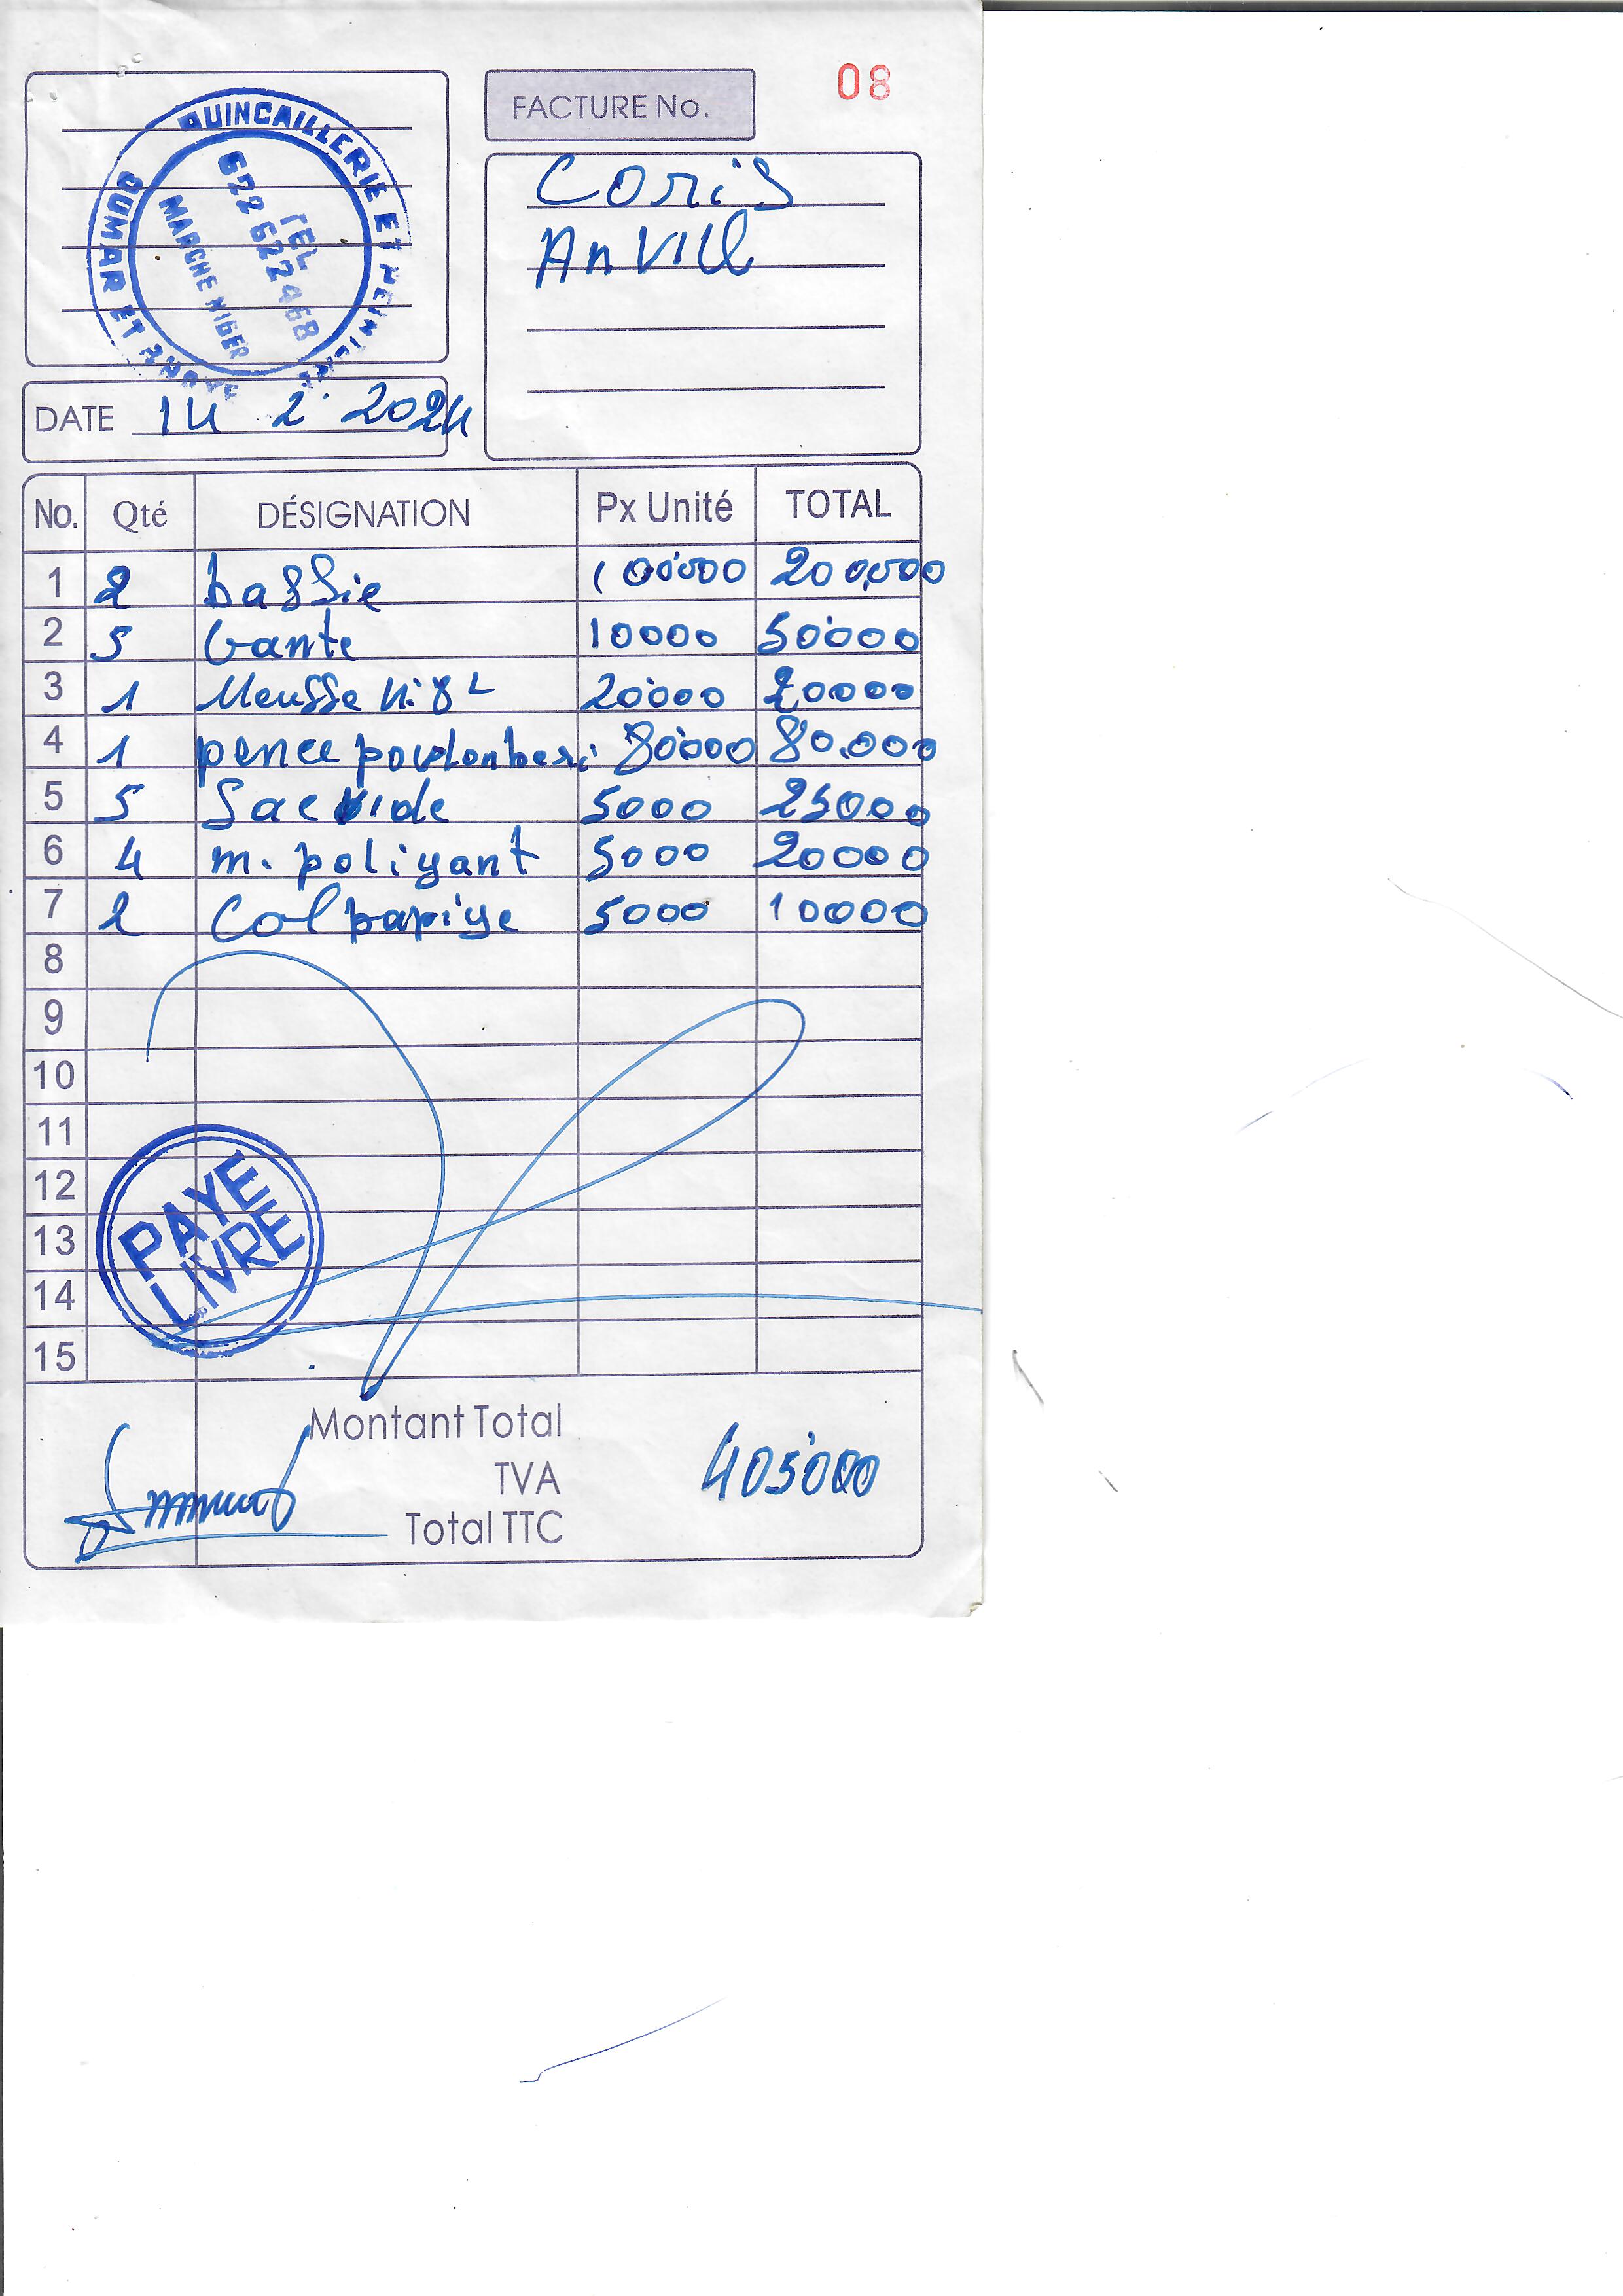 08
QUINCAILLERIE ET PEINTURE
OUMAR ET
TEL
622 622468
MARCHE NIGER
FACTURE No.
Coris
Anvill
DATE 14 2 2024
No. Qté DÉSIGNATION Px Unité TOTAL
1 2 bassie 100000 200,000
2 5 Gante 10000 50000
3 1 20000 20000
4 1 pence 80000 80.000
5 5 Sac vide 5000 25000
6 4 m. poliyant 5000 20000
7 2 Col papiye 5000 10000
8
9
10
11
12
13
14
15
PAYE
LIVRE
Montant Total
TVA 405000
Total TTC